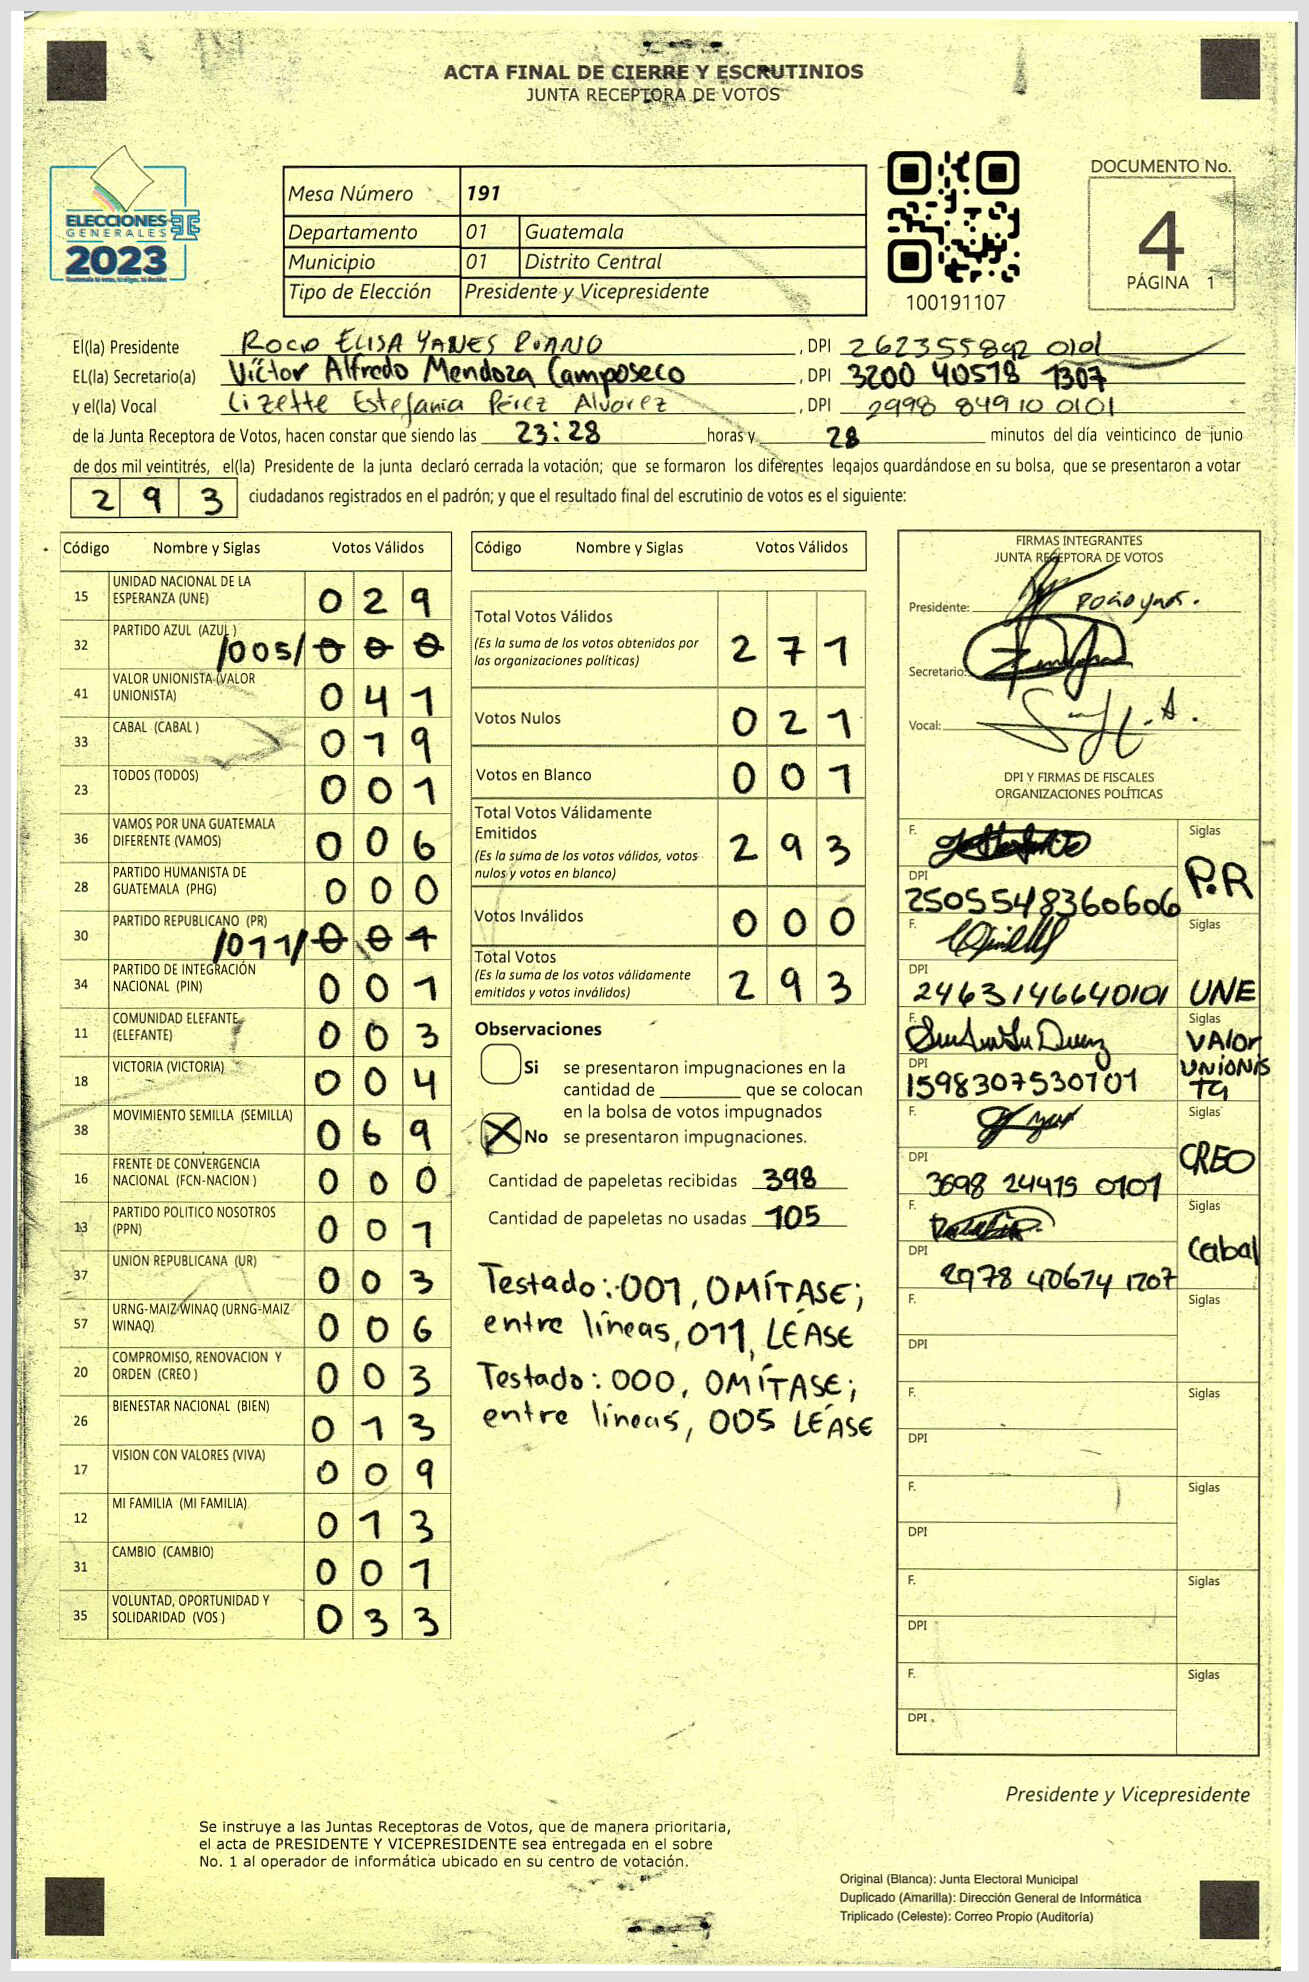 ACTA FINAL DE CIERRE Y ESCRUTINIOS
JUNTA RECEPTORA DE VOTOS
ELECCIONES
GENERALES
2023
Mesa Número 191
Departamento 01 Guatemala
Municipio 01 Distrito Central
Tipo de Elección Presidente y Vicepresidente
100191107
DOCUMENTO No.
4
PÁGINA 1
El(la) Presidente ROCIO ELISA YANES RUANO, DPI 262355892 0101
EL(la) Secretario(a) Víctor Alfredo Mendoza Camposeco, DPI 3200 40518 1307
y el(la) Vocal Lizette Estefania Pérez Alvarez, DPI 2998 84910 0101
de la Junta Receptora de Votos, hacen constar que siendo las 23:28 horas y 28 minutos del día veinticinco de junio
de dos mil veintitrés, el(la) Presidente de la junta declaró cerrada la votación; que se formaron los diferentes legajos guardándose en su bolsa, que se presentaron a votar
293 ciudadanos registrados en el padrón; y que el resultado final del escrutinio de votos es el siguiente:
Código Nombre y Siglas Votos Válidos
15 UNIDAD NACIONAL DE LA ESPERANZA (UNE) 029
32 PARTIDO AZUL (AZUL ) /005/ 000
41 VALOR UNIONISTA (VALOR UNIONISTA) 041
33 CABAL (CABAL ) 019
23 TODOS (TODOS) 001
36 VAMOS POR UNA GUATEMALA DIFERENTE (VAMOS) 006
28 PARTIDO HUMANISTA DE GUATEMALA (PHG) 000
30 PARTIDO REPUBLICANO (PR) /011/ 001
34 PARTIDO DE INTEGRACIÓN NACIONAL (PIN) 001
11 COMUNIDAD ELEFANTE (ELEFANTE) 003
18 VICTORIA (VICTORIA) 004
38 MOVIMIENTO SEMILLA (SEMILLA) 069
16 FRENTE DE CONVERGENCIA NACIONAL (FCN-NACION ) 000
13 PARTIDO POLITICO NOSOTROS (PPN) 001
37 UNION REPUBLICANA (UR) 003
57 URNG-MAIZ WINAQ (URNG-MAIZ WINAQ) 006
20 COMPROMISO, RENOVACION Y ORDEN (CREO ) 003
26 BIENESTAR NACIONAL (BIEN) 013
17 VISION CON VALORES (VIVA) 009
12 MI FAMILIA (MI FAMILIA) 013
31 CAMBIO (CAMBIO) 001
35 VOLUNTAD, OPORTUNIDAD Y SOLIDARIDAD (VOS ) 033
Código Nombre y Siglas Votos Válidos
Total Votos Válidos 271
(Es la suma de los votos obtenidos por
las organizaciones políticas)
Votos Nulos 021
Votos en Blanco 001
Total Votos Válidamente
Emitidos 293
(Es la suma de los votos válidos, votos
nulos y votos en blanco)
Votos Inválidos 000
Total Votos 293
(Es la suma de los votos válidamente
emitidos y votos inválidos)
Observaciones
Si se presentaron impugnaciones en la
cantidad de ________ que se colocan
en la bolsa de votos impugnados
X No se presentaron impugnaciones.
Cantidad de papeletas recibidas 398
Cantidad de papeletas no usadas 105
Testado: 001, OMÍTASE;
entre líneas, 011, LÉASE
Testado: 000, OMÍTASE;
entre líneas, 005 LÉASE
FIRMAS INTEGRANTES
JUNTA RECEPTORA DE VOTOS
Presidente:
Secretario:
Vocal:
DPI Y FIRMAS DE FISCALES
ORGANIZACIONES POLÍTICAS
F. Siglas
P.R
DPI
2505548360606
F. Siglas
DPI
2463146640101 UNE
F. Siglas
VALOR
UNIONIS
TA
DPI
1598307530101
F. Siglas
CREO
DPI
3698 24415 0101
F. Siglas
Cabal
DPI
2978 40674 1207
F. Siglas
DPI
F. Siglas
DPI
F. Siglas
DPI
F. Siglas
DPI
F. Siglas
DPI
Presidente y Vicepresidente
Se instruye a las Juntas Receptoras de Votos, que de manera prioritaria,
el acta de PRESIDENTE Y VICEPRESIDENTE sea entregada en el sobre
No. 1 al operador de informática ubicado en su centro de votación.
Original (Blanca): Junta Electoral Municipal
Duplicado (Amarilla): Dirección General de Informática
Triplicado (Celeste): Correo Propio (Auditoría)